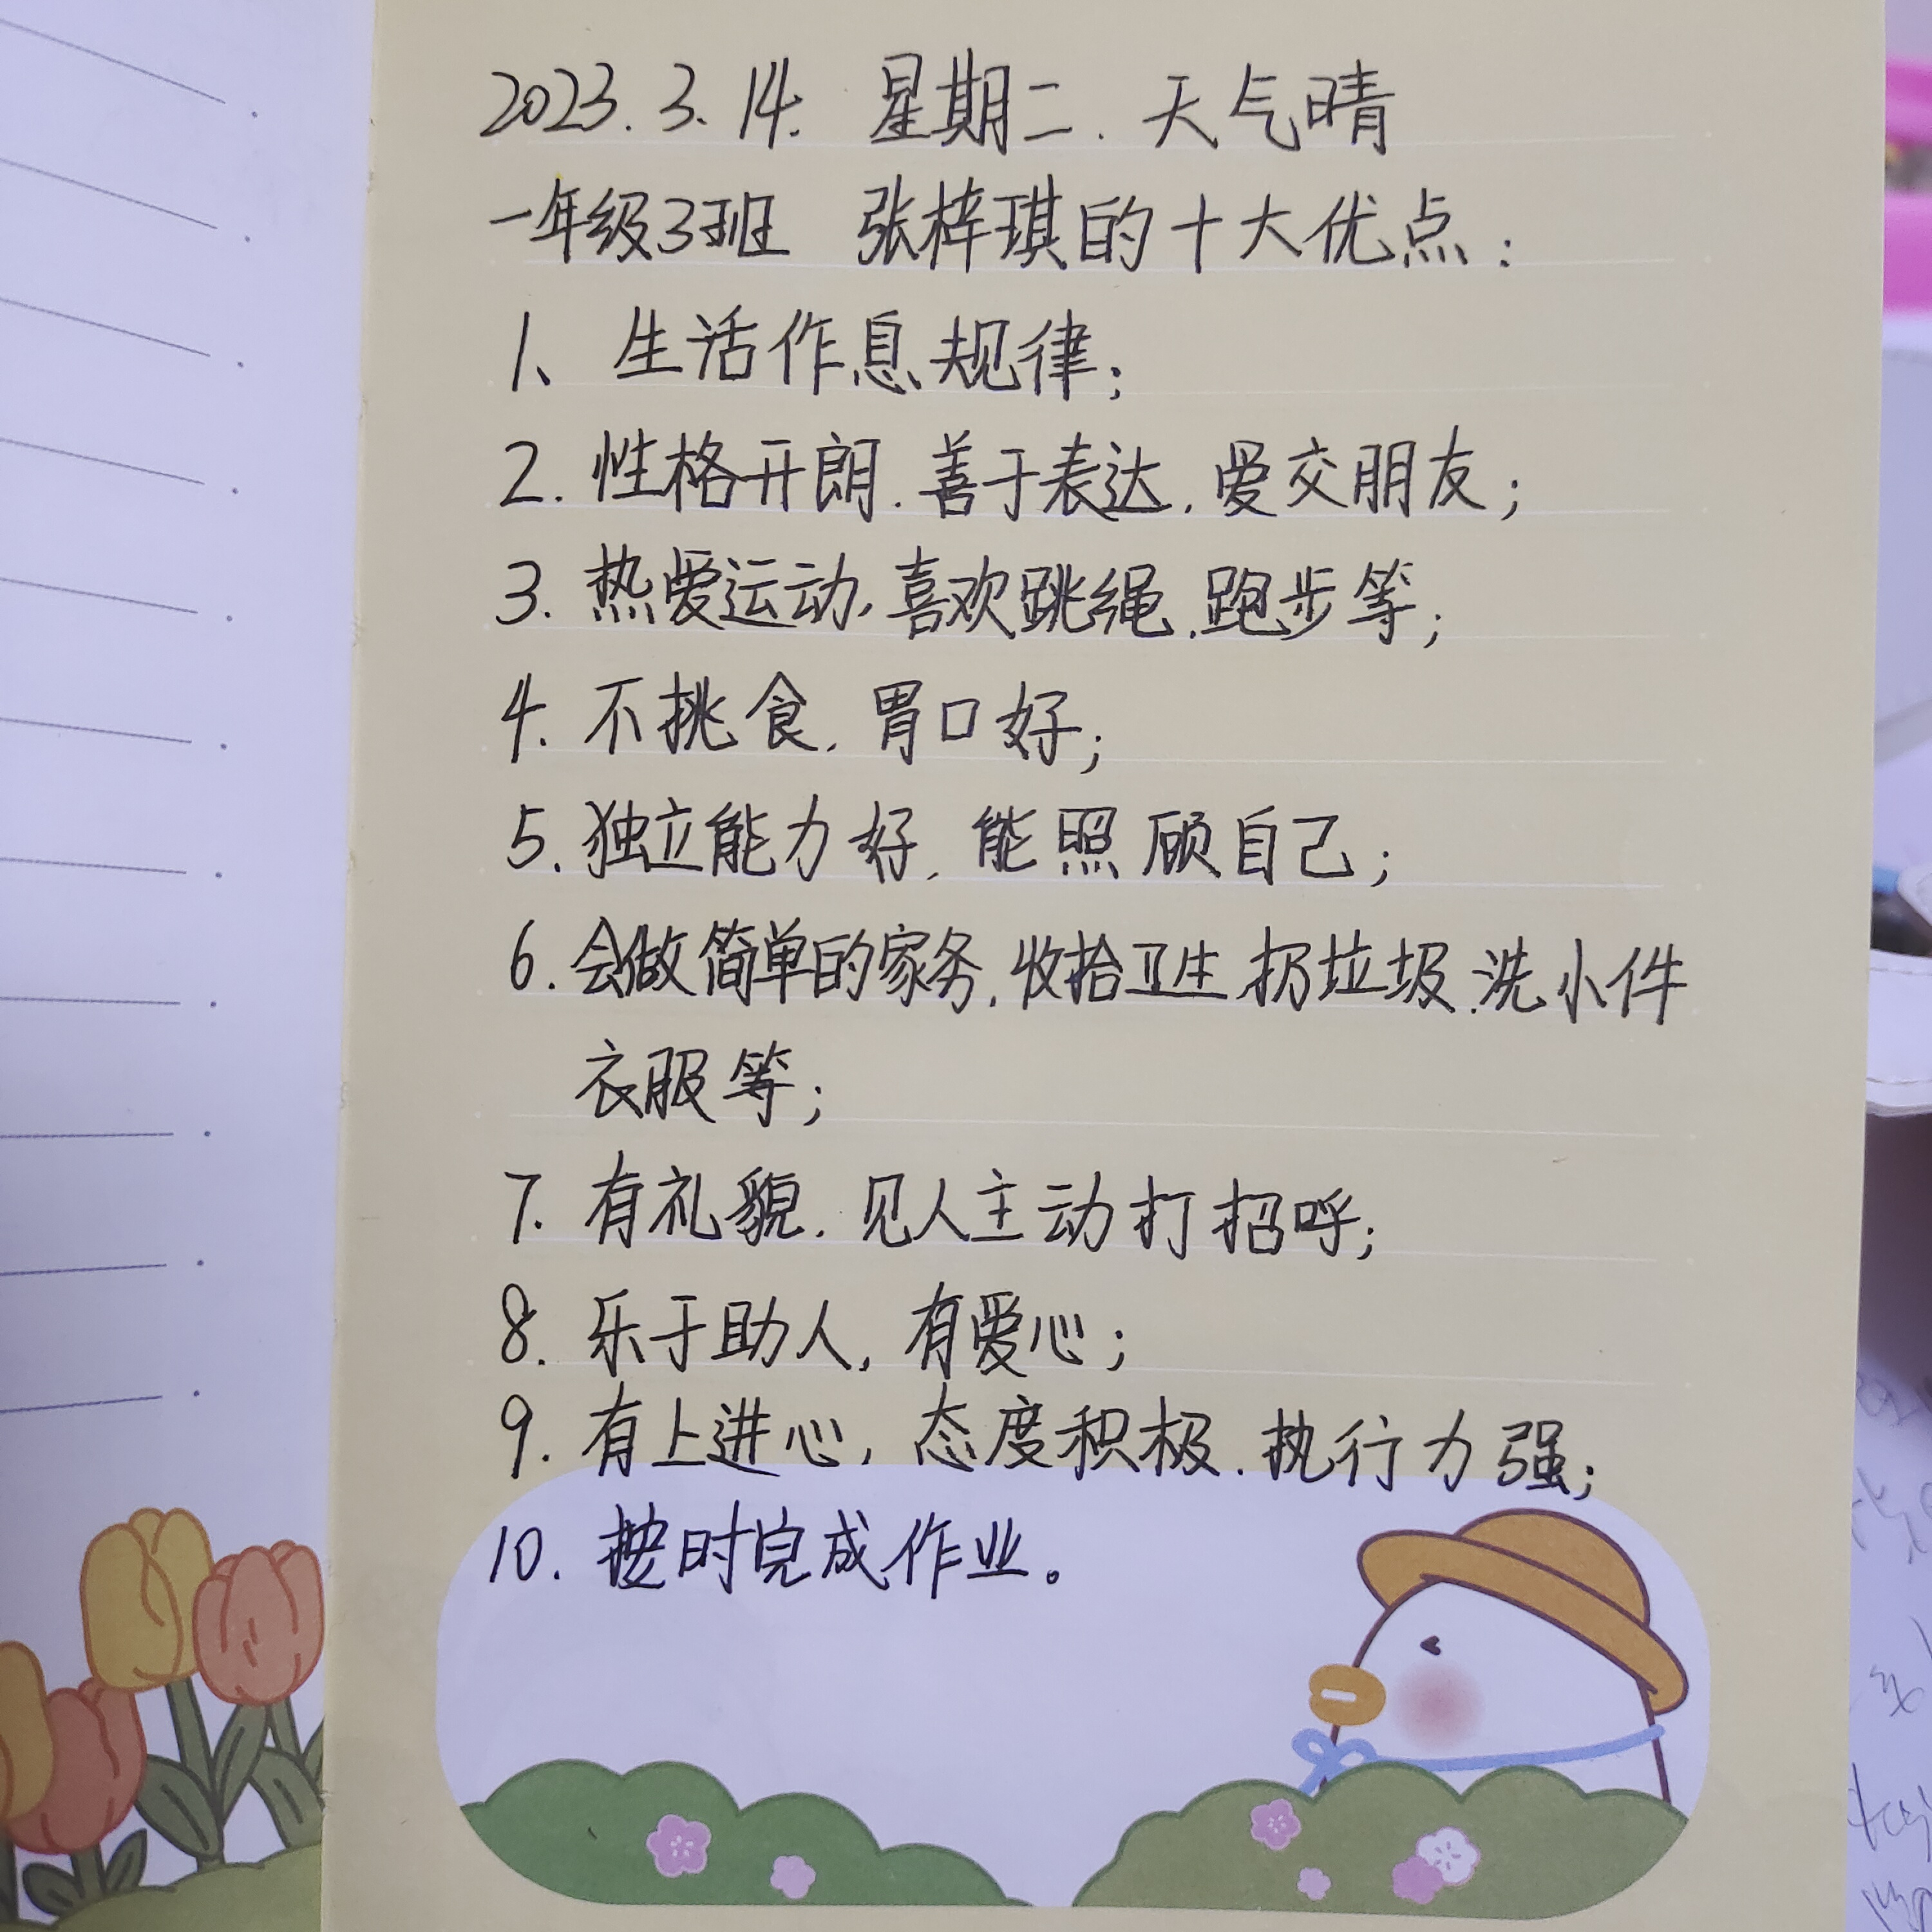 2023.3.14. 星期二. 天气晴
一年级3班 张梓琪的十大优点:
1、生活作息规律;
2. 性格开朗.善于表达,爱交朋友;
3. 热爱运动,喜欢跳绳.跑步等;
4. 不挑食,胃口好;
5. 独立能力好,能照顾自己;
6. 会做简单的家务,收拾卫生.扔垃圾.洗小件
衣服等;
7. 有礼貌.见人主动打招呼;
8. 乐于助人,有爱心;
9. 有上进心,态度积极.执行力强;
10. 按时完成作业。